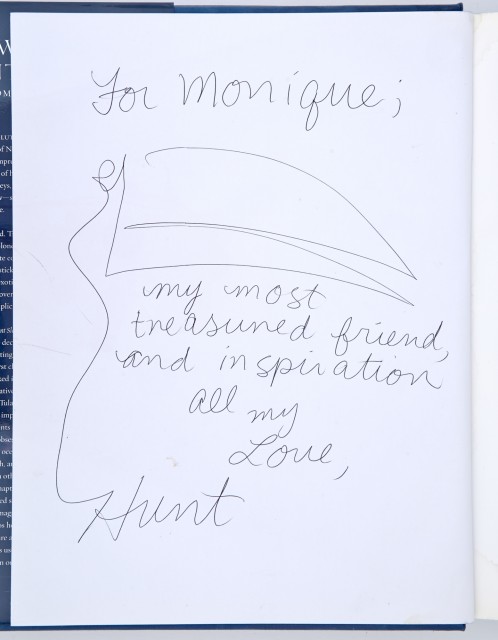 For Monique;
my most
treasured friend,
and inspiration
all my
Love,
Hunt